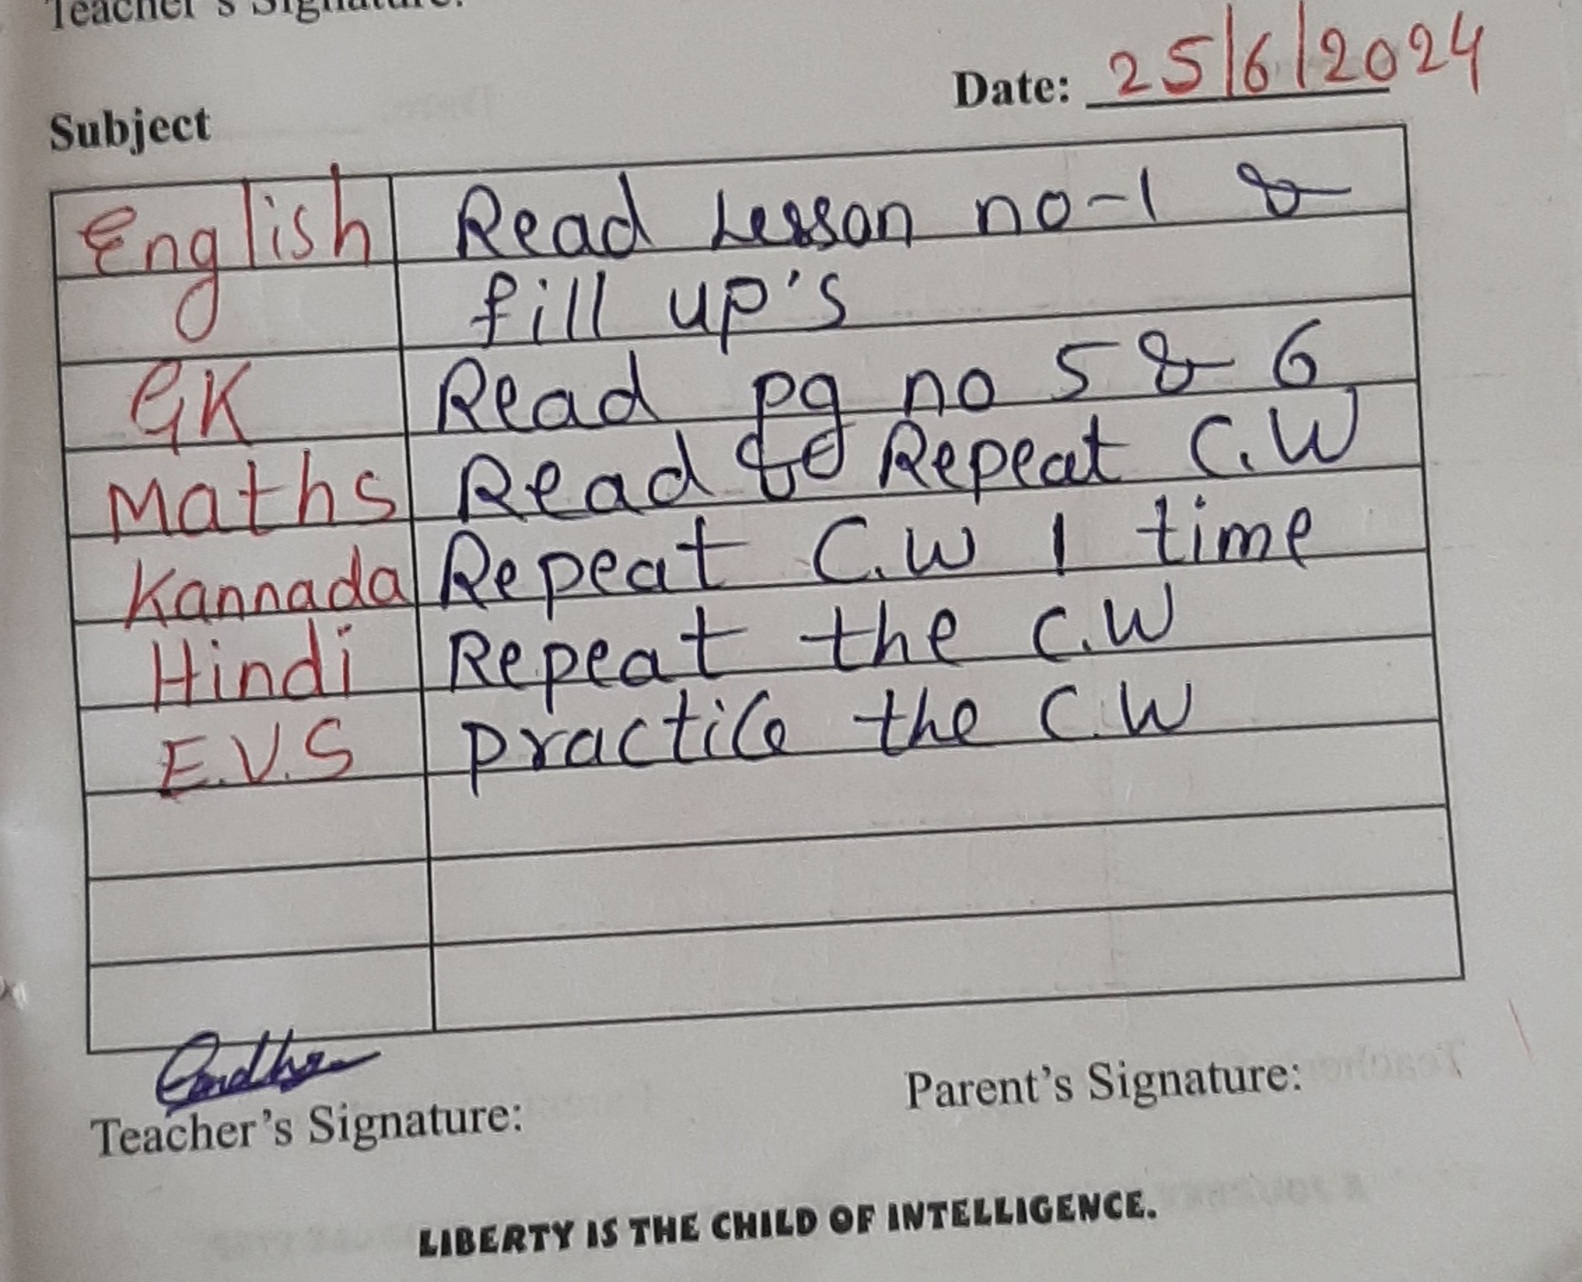 Teacher's Signature:
Date: 25/6/2024
Subject
English Read Lesson no-1 &
fill up's
GK Read pg no 5 & 6
Maths Read & Repeat C.W
Kannada Repeat C.W 1 time
Hindi Repeat the C.W
E.V.S practice the C.W
Teacher's Signature: Parent's Signature:
LIBERTY IS THE CHILD OF INTELLIGENCE.